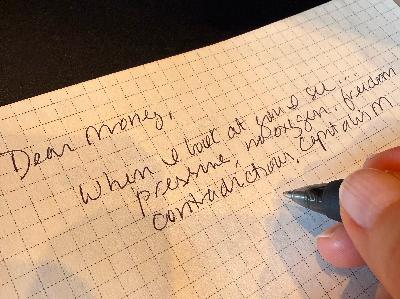 Dear Money,
When I look at you I see...
pressure, no oxygen, freedom
contradictions, capitalism